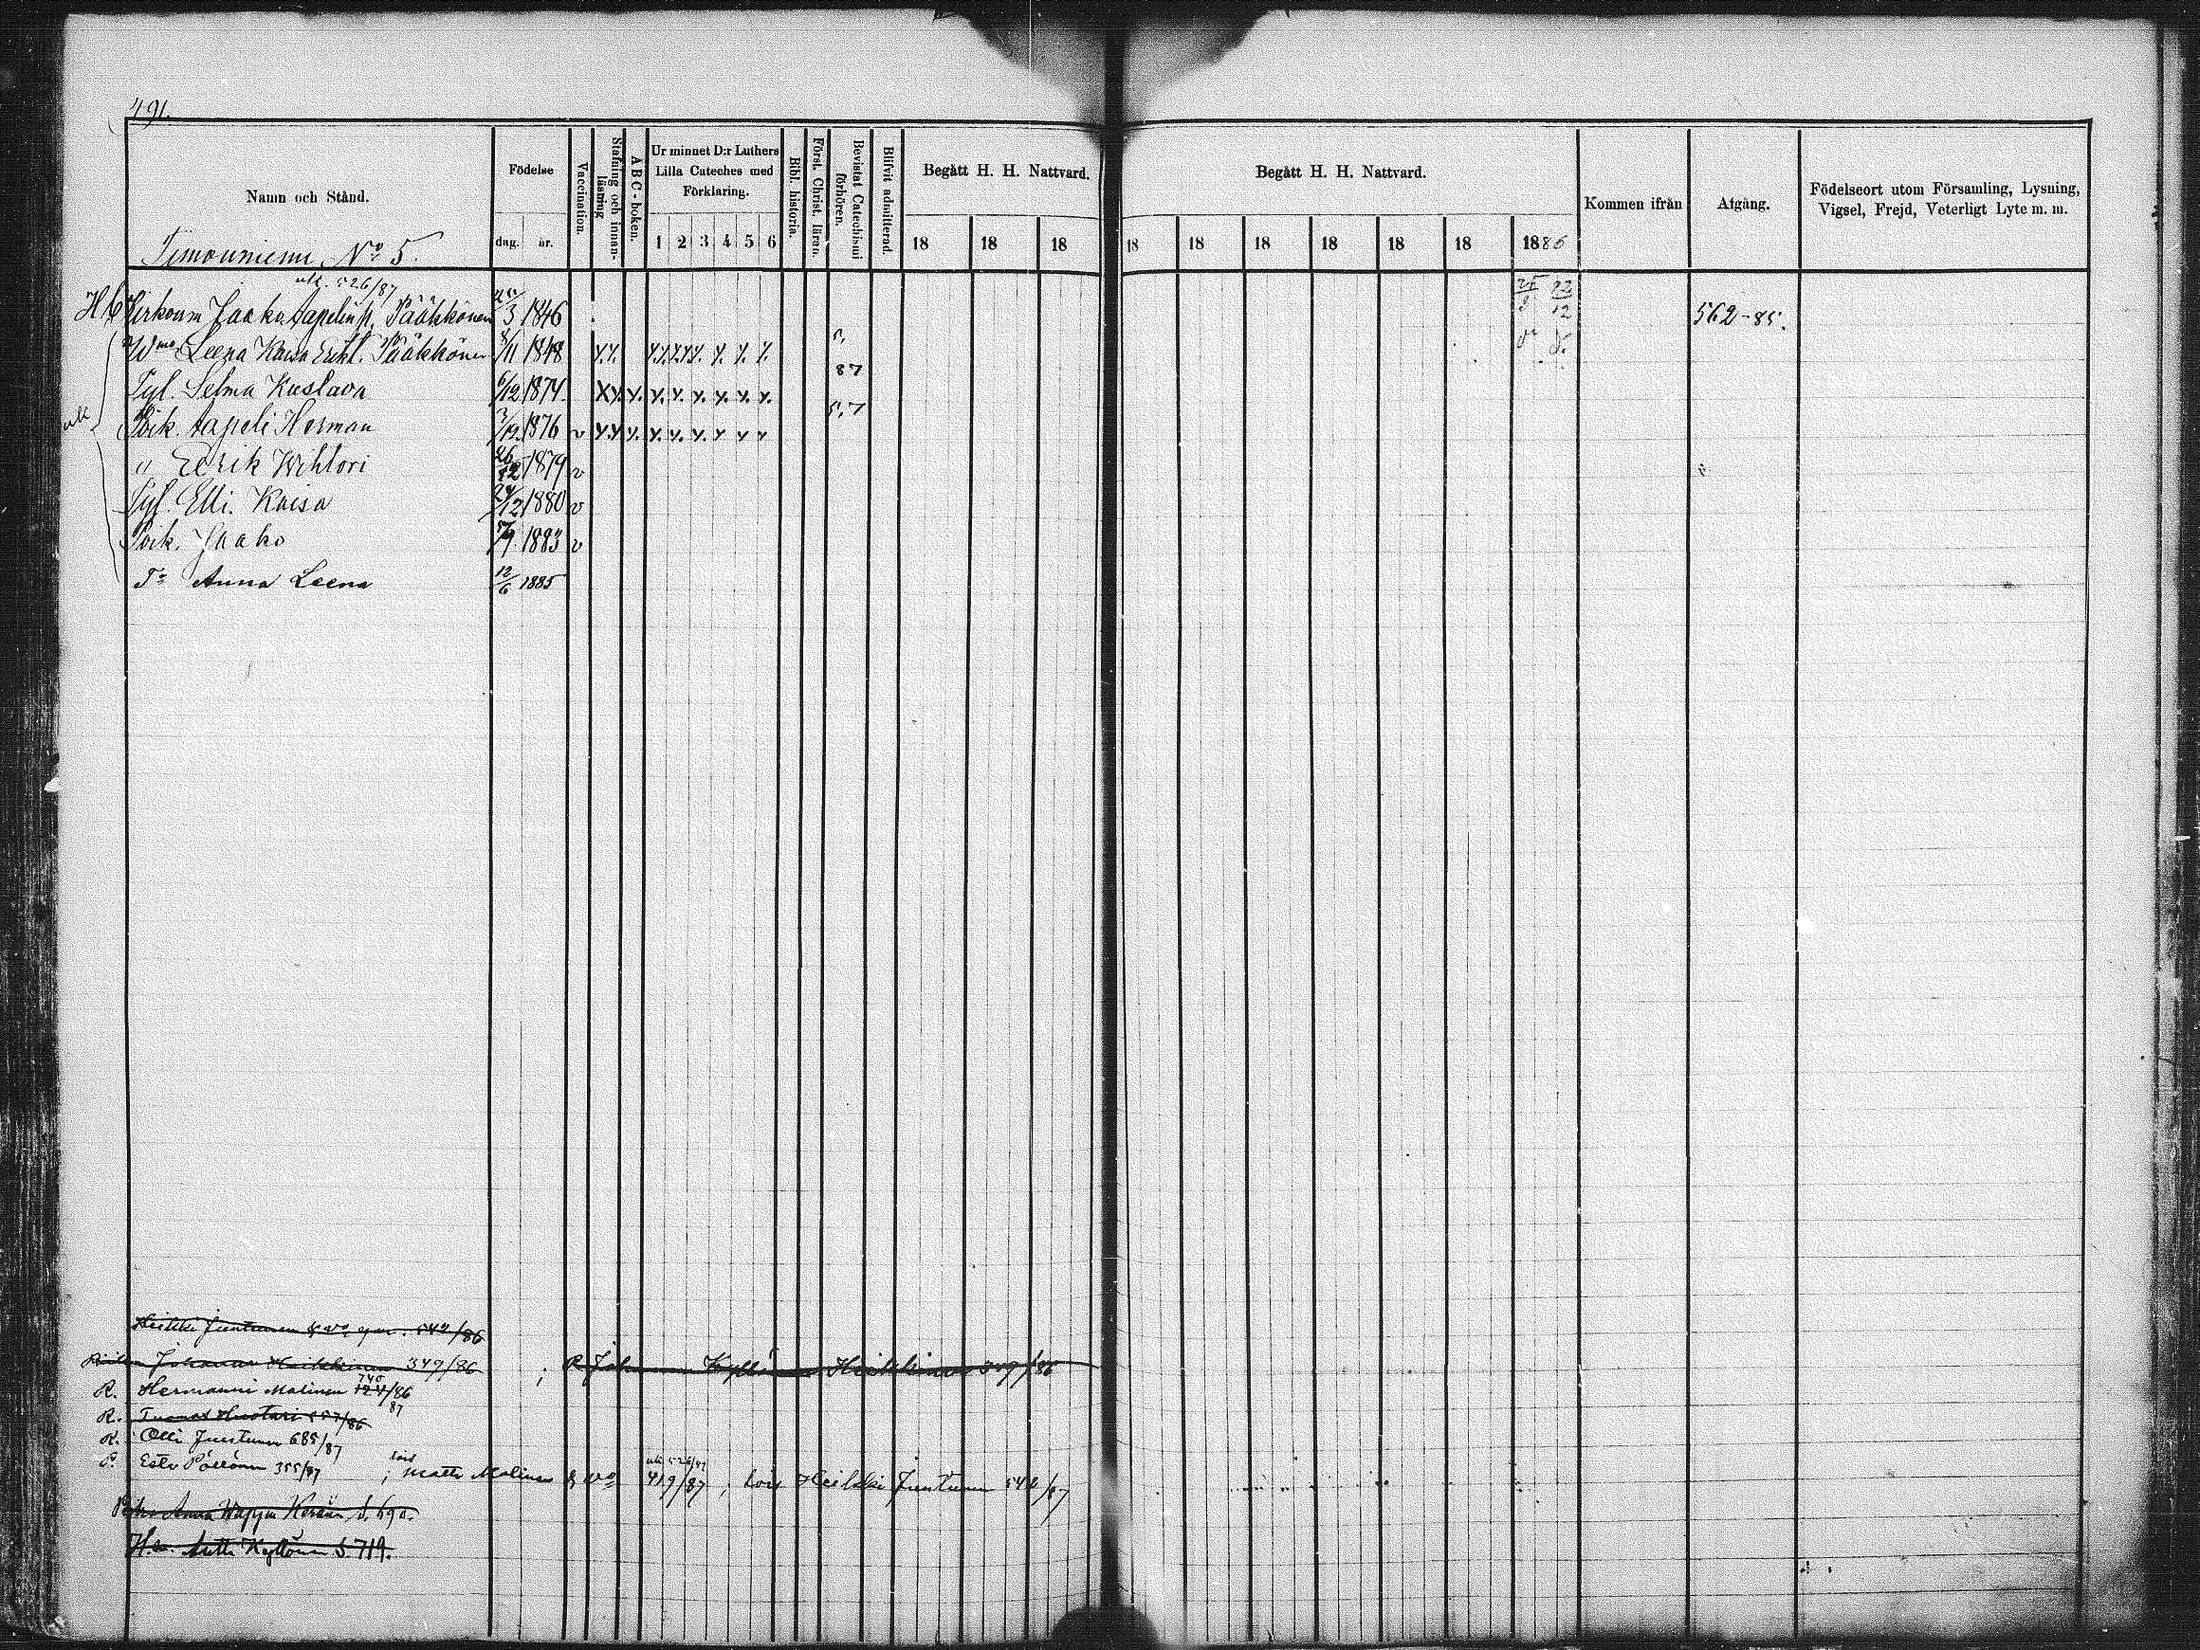 491.
Namn och Stånd.
Födelse
dag. år.
Vaccination.
Stafning och innanläsning
ABC-boken.
Ur minnet D:r Luthers Lilla Cateches med Förklaring.
1 2 3 4 5 6
Bibl. historia.
Först. Christ. läran.
Bevistat Catechismi förhören.
Blifvit admitterad.
Begått H. H. Nattvard.
18 18 18
Begått H. H. Nattvard.
18 18 18 18 18 18 1886
Kommen ifrån
Afgång.
Födelseort utom Församling, Lysning, Vigsel, Frejd, Veterligt Lyte m. m.
Timoniemi N:o 5.
ulk. 526/87
Jaako Aapelin p. Pääkkönen 25/3 1846 562-85.
Wmo Leena Kaisa Erikt. Pääkkönen 8/11 1848 y.y. 87
Tyt. Selma Kustava 6/12 1874. 87
Poik. Aapeli Herman 3/12 1876 v
" Eerik Wihtori 26/12 1879 v
Tyt. Elli Kaisa 24/12 1880 v
Poik. Jaako 7/9 1883 v
Tr Anna Leena 12/6 1885
ulk
Heikki Juntunen & vo 542/86
Johannes Heikkinen 349/86 ; R Johannes Kyllönen Heikkinen 349/86
R. Hermanni Malinen 740 124/86 87
R. Tuomas Huotari 557/86
R. Olli Juntunen 685/87
P. Esko Pöllönen 355/87 ; lois Matti Malinen & vo 419/87 ulk 526/87 ; lois Heikki Juntunen 542/87
Anna Keränen S. 690.
Antti Kyllönen S 719.